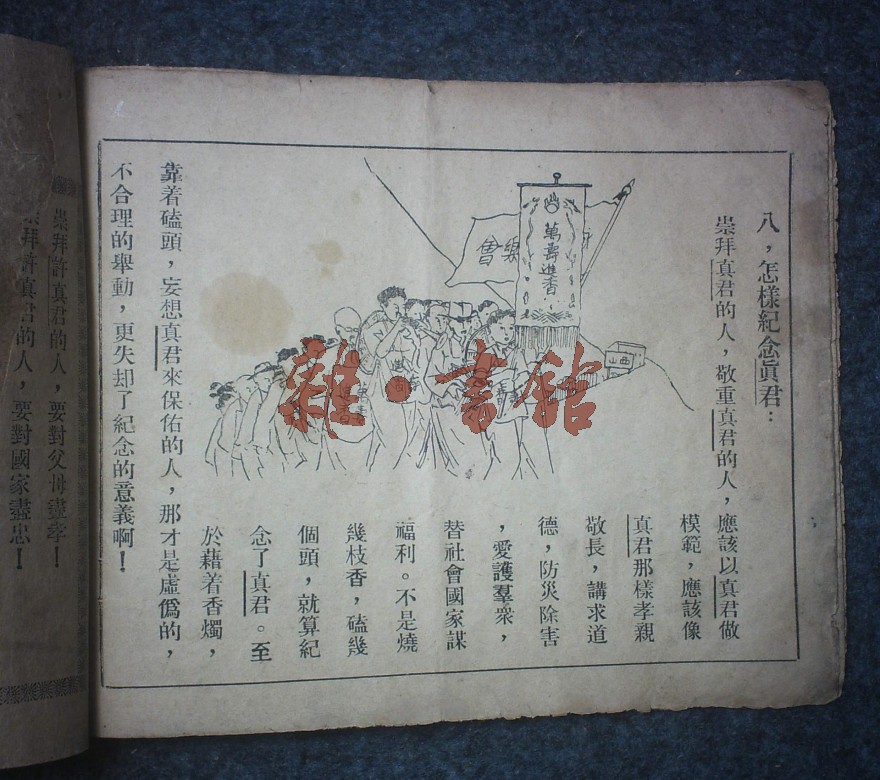 八，怎樣紀念眞君：
崇拜真君的人，敬重真君的人，應該以真君做
模範，應該像
真君那樣孝親
敬長，講求道
德，防災除害
，愛護羣衆，
替社會國家謀
福利。不是燒
幾枝香，磕幾
個頭，就算紀
念了真君。至
於藉着香燭，
靠着磕頭，妄想真君來保佑的人，那才是虛僞的，
不合理的舉動，更失却了紀念的意義啊！
萬壽進香
會
西山
雜·書館
崇拜許真君的人，要對父母盡孝！
崇拜許真君的人，要對國家盡忠！